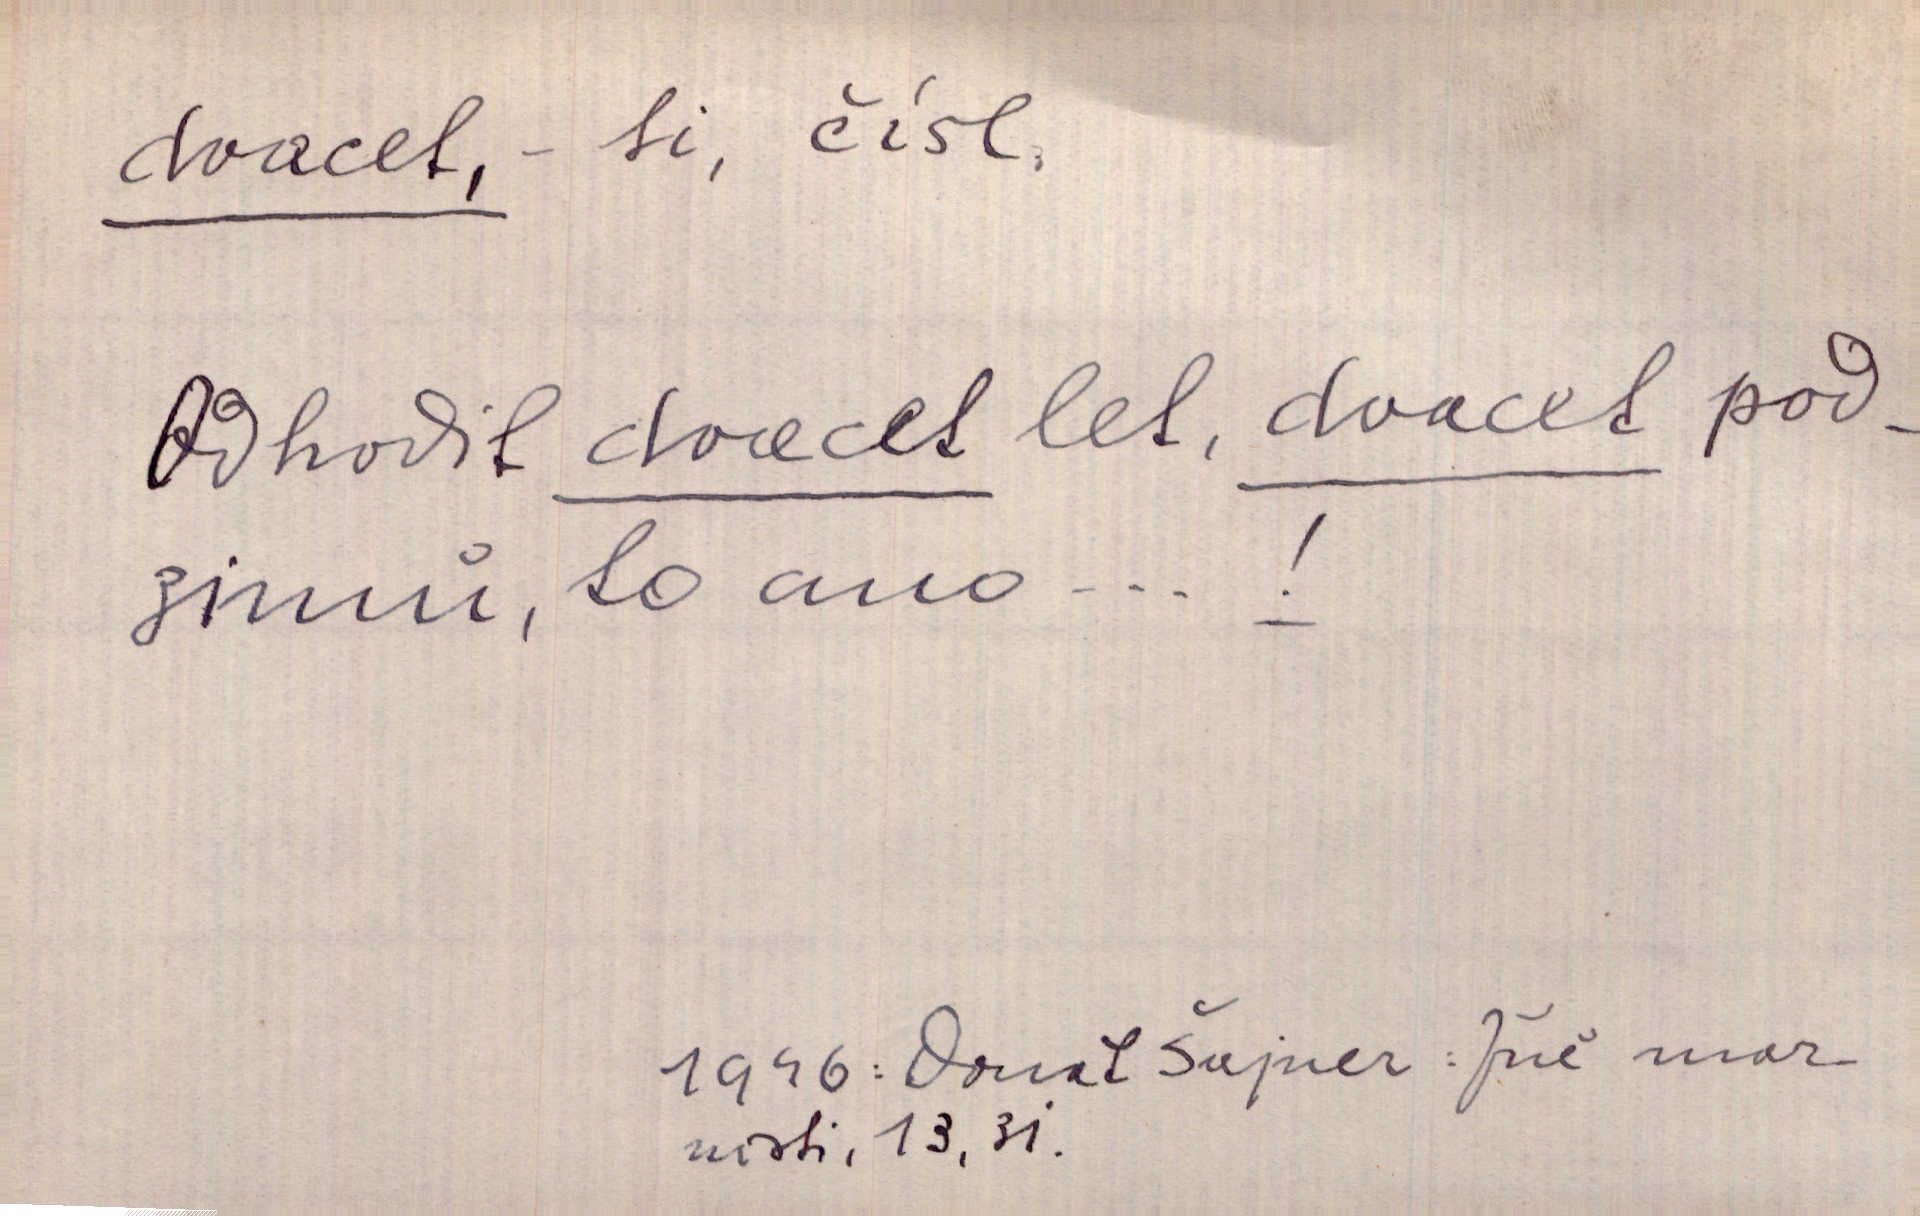 dvacet, - ti, čísl.
Odhodit dvacet let, dvacet pod-
zimů, to ano ---- !
1946: Donát Šajner: Jiné mar-
nosti, 13, zi.